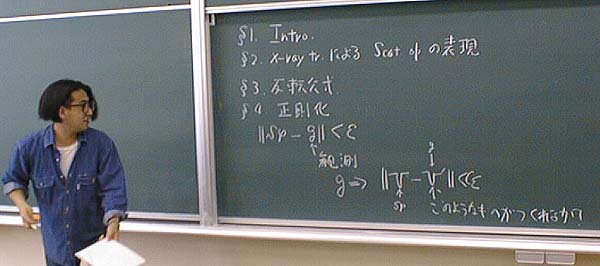 §1. Intro.
§2. X-ray tr. による Scat op の表現
§3. 反転公式
§4 正則化
‖Sφ - g‖ < ε
観測
g ⇒ ‖V - V‖ < ε
g
Sφ
このようなものがつくれるか?